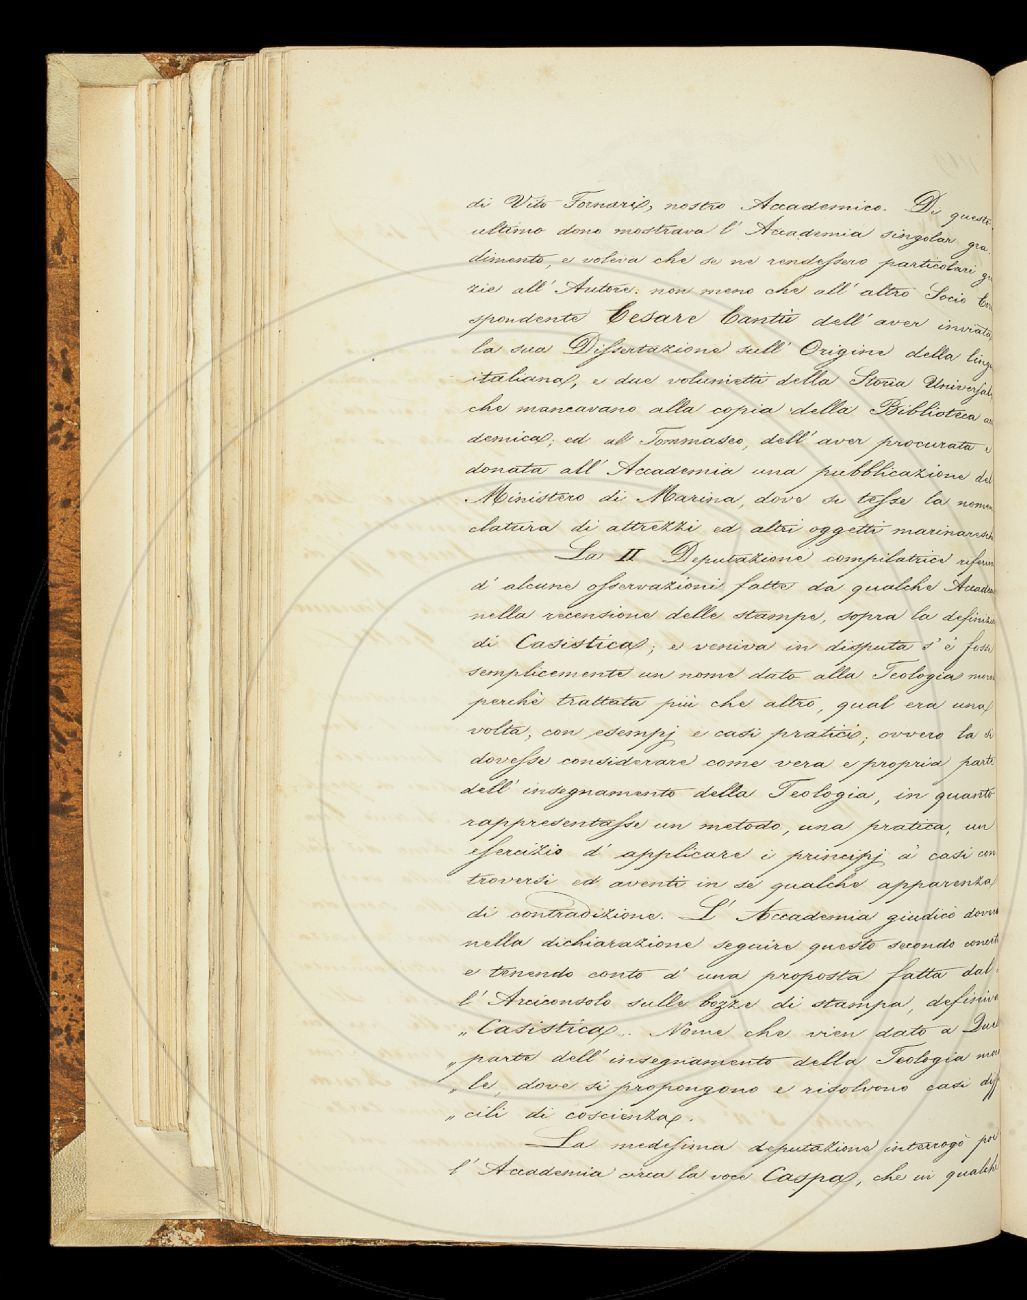 di Vito Fornari, nostro Accademico. Di questo
ultimo dono mostrava l' Accademia singolar gra
dimento, e voleva che se ne rendessero particolari gr
zie all' Autore: non meno che all' altro Socio
spondente Cesare Cantù dell' aver inviata
la sua Dissertazione sull' Origine della lingu
italiana, e due volumetti della Storia Universal
che mancavano alla copia della Biblioteca
demica; ed al Tommaseo, dell' aver procurata e
donata all' Accademia una pubblicazione del
Ministero di Marina, dove si tesse la nomen
clatura di attrezzi ed altri oggetti marinaresch
La II Deputazione compilatrice riferiva
d' alcune osservazioni fatte da qualche Accadem
nella recensione delle stampe, sopra la definizio
di Casistica; e veniva in disputa s' e' fosse
semplicemente un nome dato alla Teologia mora
perchè trattata più che altro, qual era una
volta, con esempj e casi pratici; ovvero la si
dovesse considerare come vera e propria parte
dell' insegnamento della Teologia, in quanto
rappresentasse un metodo, una pratica, un
esercizio d' applicare i principj a' casi con
troversi ed aventi in sè qualche apparenza
di contradizione. L' Accademia giudicò dovers
nella dichiarazione seguire questo secondo concett
e tenendo conto d' una proposta fatta dal
l' Arciconsolo sulle bozze di stampa, definiva
„ Casistica. Nome che vien dato a Quel
„ parte dell' insegnamento della Teologia mora
„ le, dove si propongono e risolvono casi diff
„ cili di coscienza.
La medesima deputazione interrogò poi
l' Accademia circa la voce Caspa, che in qualche